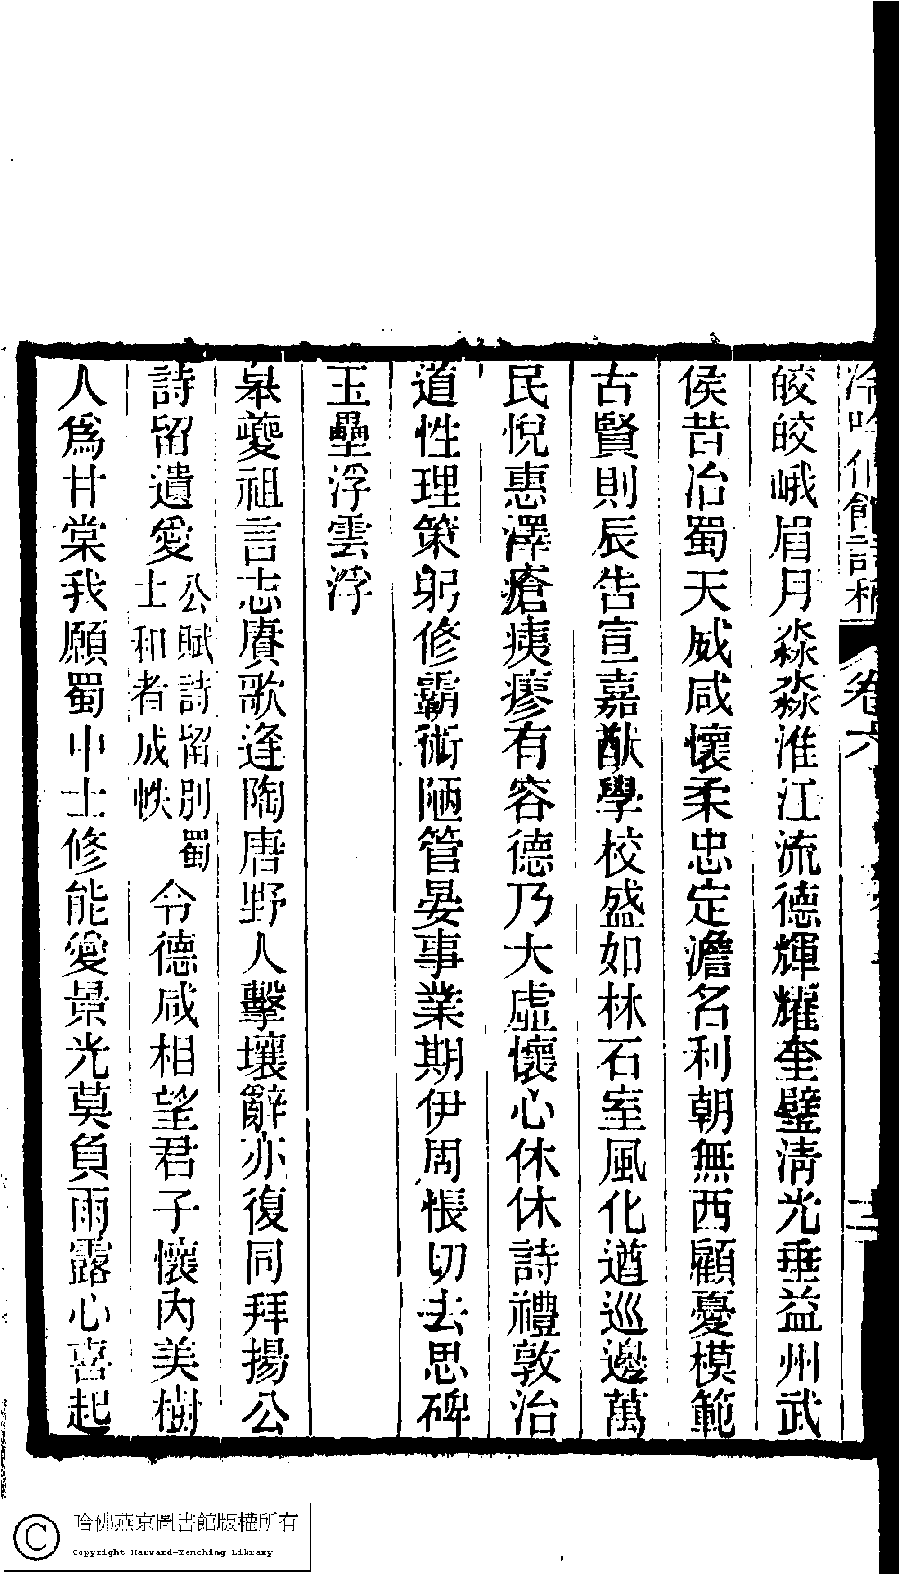 皎皎峨眉月淼淼淮江流德輝耀奎璧清光垂益州武
侯昔治蜀天威咸懷柔忠定澹名利朝無西顧憂模範
古賢則辰告宣嘉猷學校盛如林石室風化遒巡邊萬
民悅惠澤瘡痍瘳有容德乃大虛懷心休休詩禮敦治
道性理策躬修霸術陋管晏事業期伊周悵切去思碑
玉壘浮雲浮
皋夔祖言志賡歌逢陶唐野人擊壤辭亦復同拜揚公
詩留遺愛公賦詩留別蜀士和者成帙令德咸相望君子懷內美樹
人為甘棠我願蜀中士修能愛景光莫負雨露心喜起
卷六
哈佛燕京圖書館版權所有
Copyright Harvard-Yenching Library